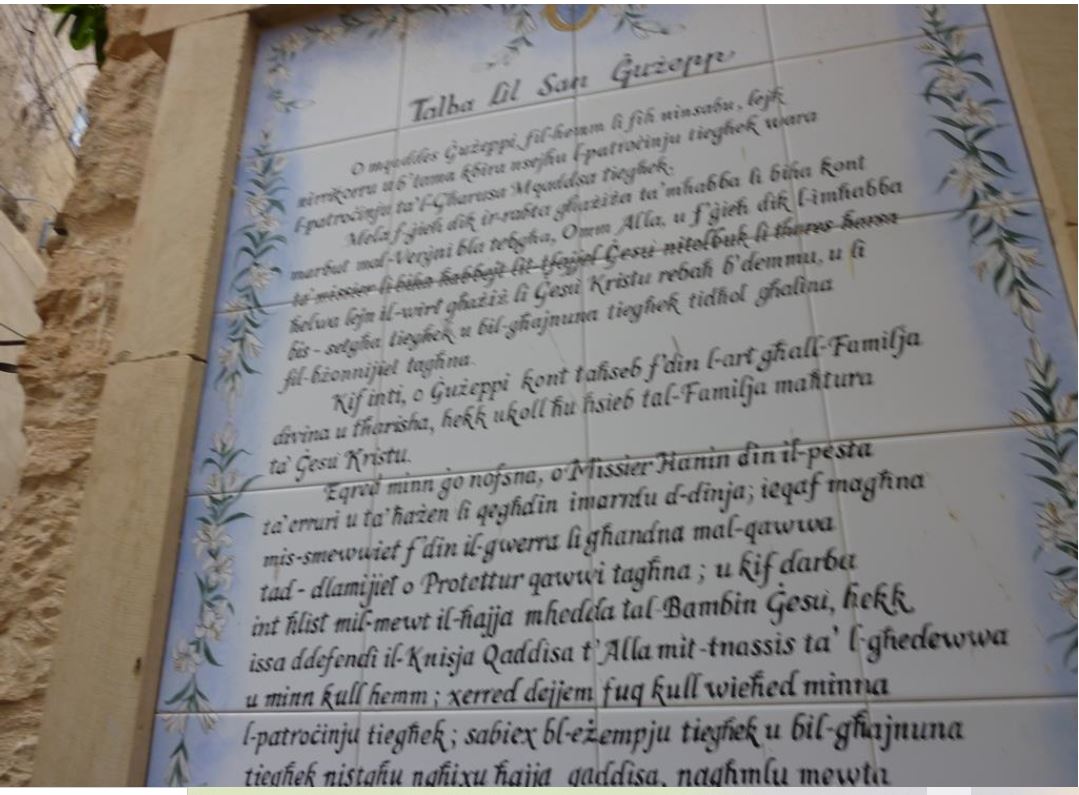 Talba Lil San Ġużepp
O mqaddes Ġużeppi, fil-hemm li fih ninsabu, lejk
nirrikorru u b'tama kbira nsejħu l-patroċinju tiegħek wara
l-patroċinju ta' l-Għarusa Mqaddsa tiegħek.
Mela f'ġieħ dik ir-rabta għażiża ta' mħabba li biha kont
marbut mal-Verġni bla tebgħa, Omm Alla, u f'ġieħ dik l-imħabba
ta' missier li biha ħabbejt lit-tfajjel Ġesu nitolbuk li tħares ħarsa
ħelwa lejn il-wirt għażiż li Ġesu Kristu rebaħ b'demmu, u li
bis-setgħa tiegħek u bil-għajnuna tiegħek tidħol għalina
fil-bżonnijiet tagħna.
Kif inti, o Ġużeppi kont taħseb f'din l-art għall-Familja
divina u tħarisha, hekk ukoll ħu ħsieb tal-Familja maħtura
ta' Ġesu Kristu.
Eqred minn ġo nofsna, o Missier Ħanin din il-pesta
ta' erruri u ta' ħażen li qegħdin imarrdu d-dinja; ieqaf magħna
mis-smewwiet f'din il-gwerra li għandna mal-qawwa
tad-dlamijiet o Protettur qawwi tagħna; u kif darba
int ħlist mil-mewt il-ħajja mhedda tal-Bambin Ġesu, hekk
issa ddefendi il-Knisja Qaddisa t'Alla mit-tnassis ta' l-għedewwa
u minn kull hemm; xerred dejjem fuq kull wieħed minna
l-patroċinju tiegħek; sabiex bl-eżempju tiegħek u bil-għajnuna
tiegħek nistgħu ngħixu ħajja qaddisa, nagħmlu mewta